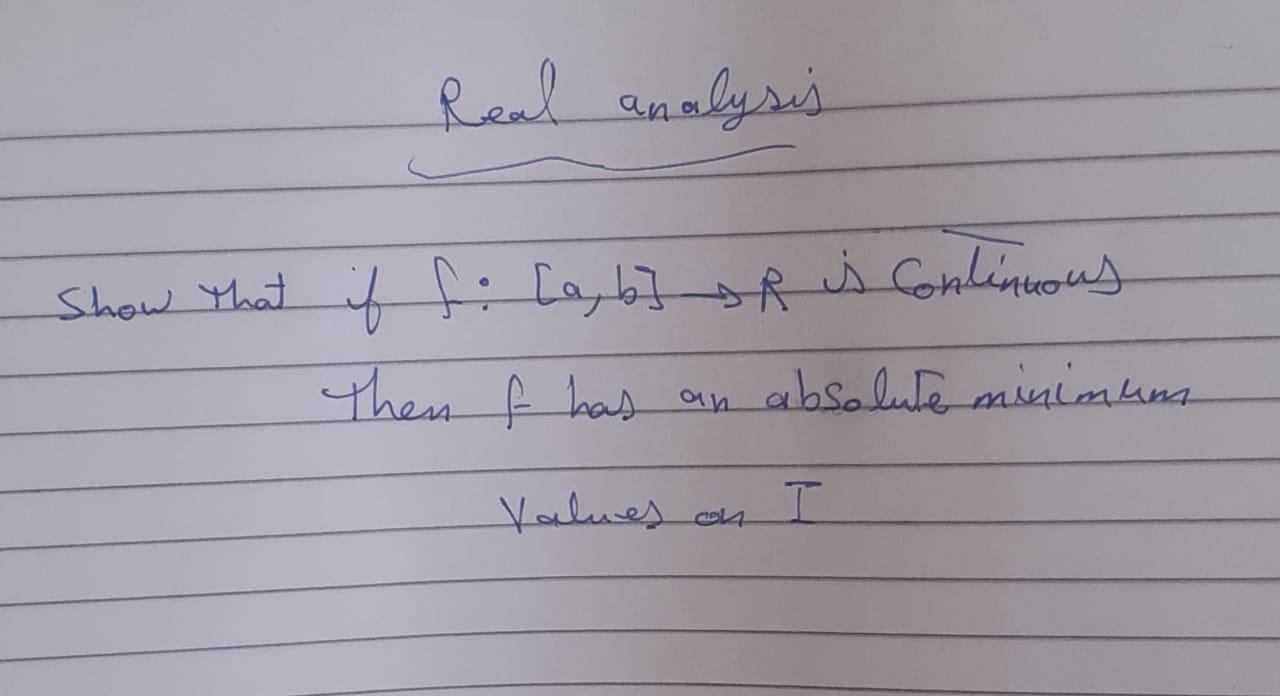 Real analysis
Show that if f: [a,b] → R is Continuous
then f has an absolute minimum
Values on I